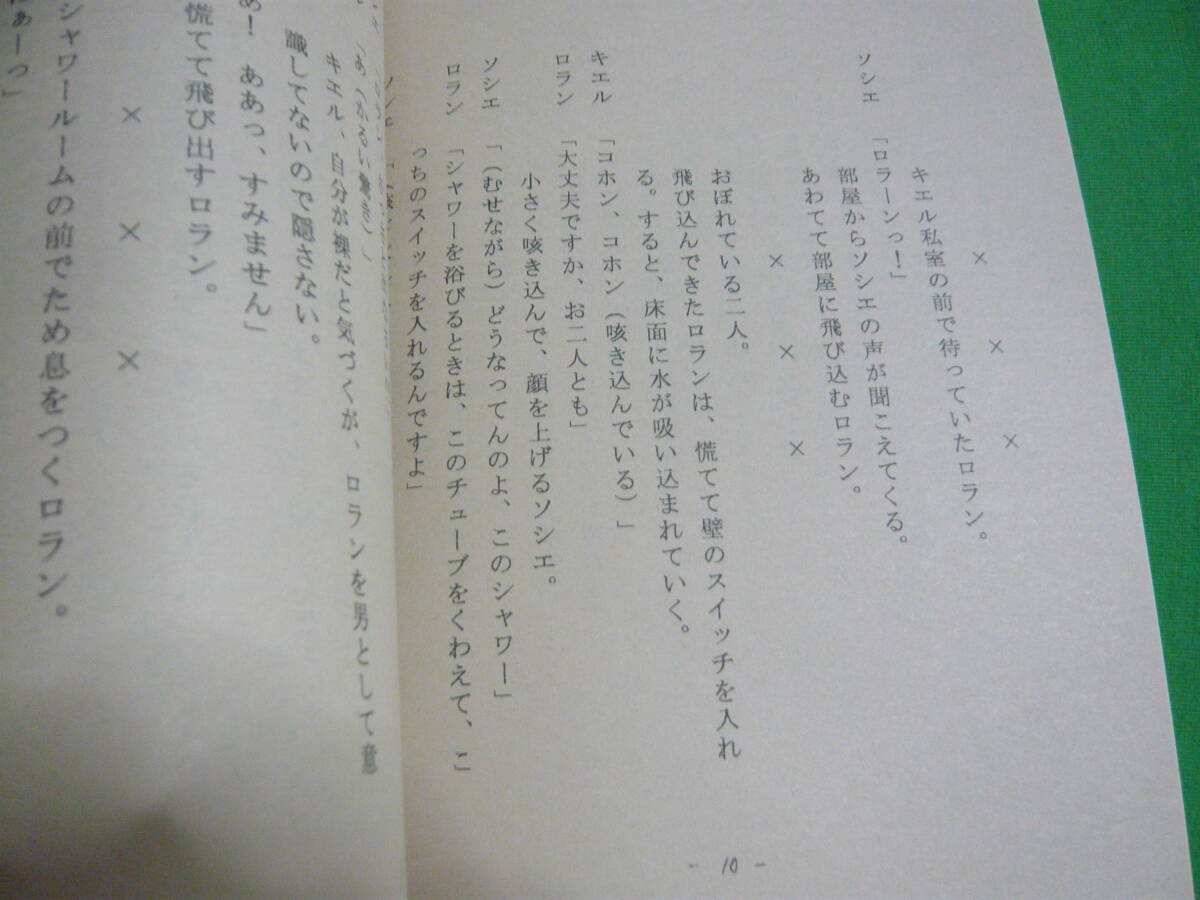 × × ×
キエル私室の前で待っていたロラン。
ソシエ 「ロラーンっ！」
部屋からソシエの声が聞こえてくる。
あわてて部屋に飛び込むロラン。
× × ×
おぼれている二人。
飛び込んできたロランは、慌てて壁のスイッチを入れ
る。すると、床面に水が吸い込まれていく。
キエル 「コホン、コホン（咳き込んでいる）」
ロラン 「大丈夫ですか、お二人とも」
小さく咳き込んで、顔を上げるソシエ。
ソシエ 「（むせながら）どうなってんのよ、このシャワー」
ロラン 「シャワーを浴びるときは、このチューブをくわえて、こ
っちのスイッチを入れるんですよ」
ソシエ
- 10 -
「あ（かるい驚き）」
キエル、自分が裸だと気づくが、ロランを男として意
識してないので隠さない。
あ！ ああっ、すみません」
慌てて飛び出すロラン。
× × ×
シャワールームの前でため息をつくロラン。
はぁーっ」